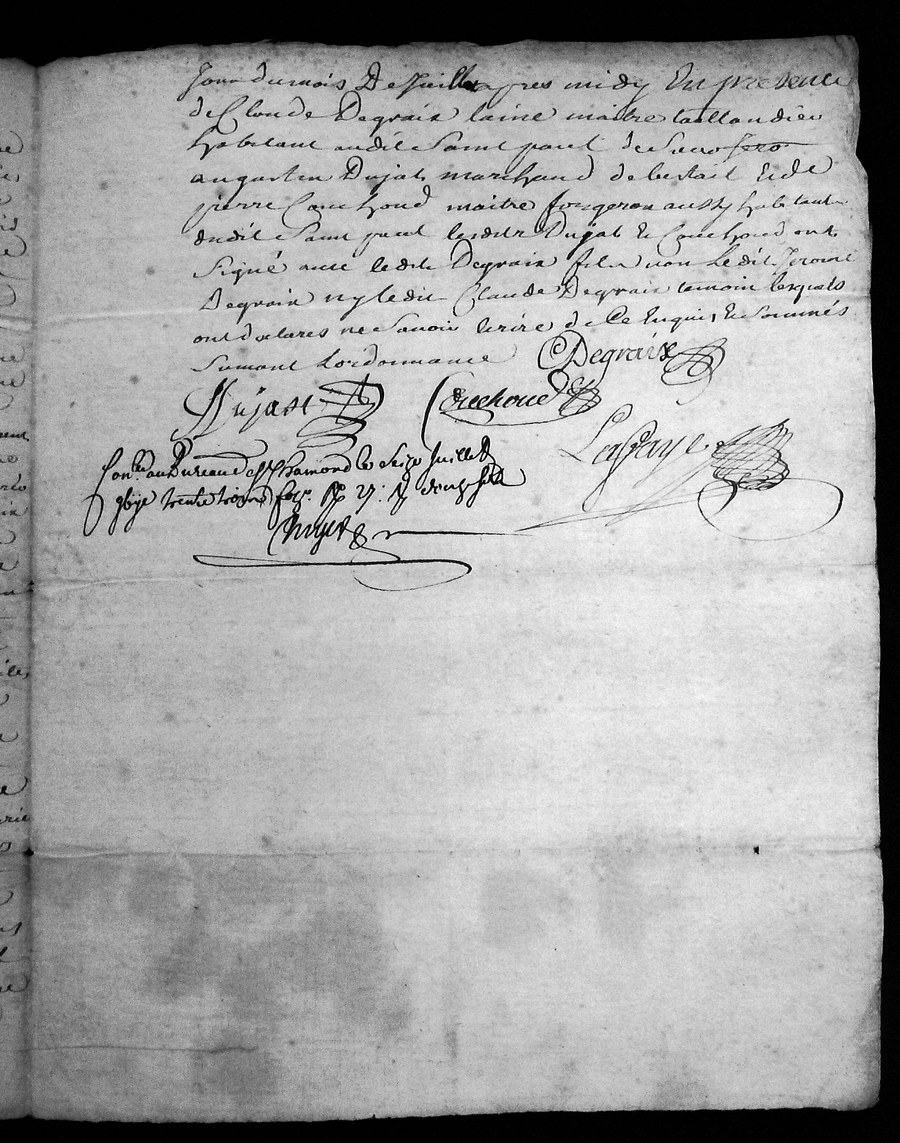 Jour du mois De Juillet apres midy En presence
de Claude Degraix laine maitre taillandier
habitant audit Saint paul
augustin Dujat marchand de bestail Et de
pierre Couchoud maitre forgeron aussy habitant
dudit Saint paul lesdits Dujat Et Couchoud ont
Signé avec ledit Degraix fils non Ledit Jerome
Degraix ny ledit Claude Degraix temoin lesquels
ont declares ne Savoir Ecrire de Ce Enquis Et Sommés
Suivant Lordonnance Degraix
Dujast Couchoud
Lafaye
au Bureau de St Chamond le Seize Juillet
trente trois